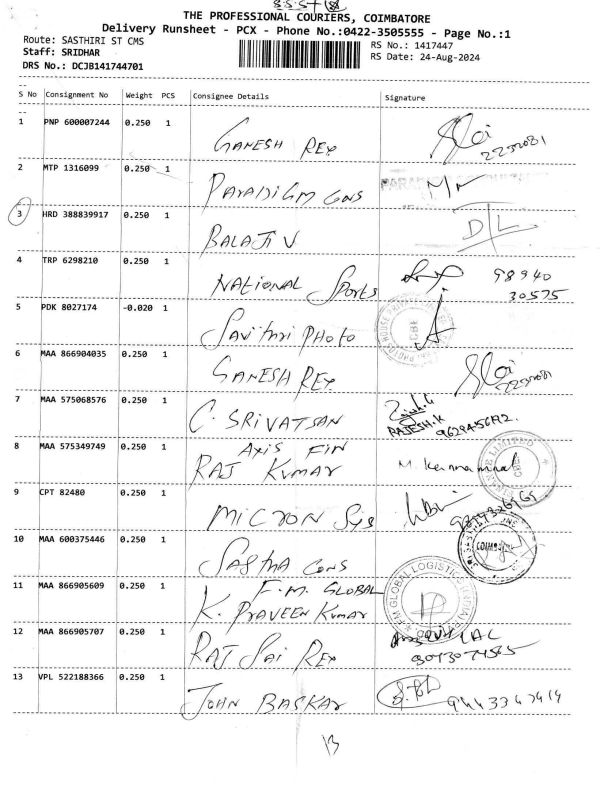 8.55+
THE PROFESSIONAL COURIERS, COIMBATORE
Delivery Runsheet - PCX - Phone No.:0422-3505555 - Page No.:1
Route: SASTHIRI ST CMS
RS No.: 1417447
Staff: SRIDHAR
RS Date: 24-Aug-2024
DRS No.: DCJB141744701
S No Consignment No Weight PCS Consignee Details Signature
1 PNP 600007244 0.250 1 GANESH REX
2232081
2 MTP 1316099 0.250 1 PARADIGM CONS
3 HRD 388839917 0.250 1 BALAJI V
4 TRP 6298210 0.250 1 NATIONAL SPORTS 98940
30575
5 PDK 8027174 -0.020 1 SAVITHRI PHOTO
CBE
6 MAA 866904035 0.250 1 GANESH REX
2232081
7 MAA 575068576 0.250 1 C. SRIVATSAN
RAJESH.K
8 MAA 575349749 0.250 1 AXIS FIN
RAJ KUMAR
LIMITED
9 CPT 82480 0.250 1 MICRON SYS
10 MAA 600375446 0.250 1 SASTHA CONS
11 MAA 866905609 0.250 1 F.M. GLOBAL
K. PRAVEEN KUMAR
FM GLOBAL LOGISTICS
12 MAA 866905707 0.250 1 RAJ SAI REX
13 VPL 522188366 0.250 1 JOHN BASKAR
13